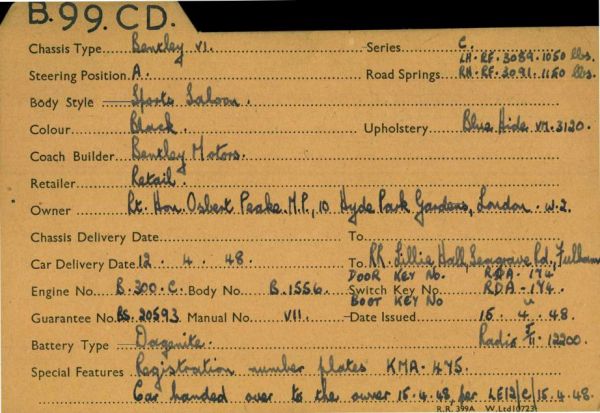 B.99.CD.
Chassis Type Bentley VI. Series C.
LH. RF. 3089. 1050 lbs.
Steering Position A. Road Springs RH. RF. 3091. 1150 lbs.
Body Style Sports Saloon.
Colour Black. Upholstery Blue Hide VM. 3120.
Coach Builder Bentley Motors.
Retailer Retail.
Owner Rt. Hon Osbert Peake. M.P., 10 Hyde Park Gardens, London. W.2.
Chassis Delivery Date To
Car Delivery Date 12. 4. 48. To RR. Lillie Hall, Seagrave Rd., Fulham
DOOR KEY No. RDA-174
Engine No. B. 300. C. Body No. B. 1556. Switch Key No. RDA-174.
BOOT KEY No "
Guarantee No. BS. 20593 Manual No. VII. Date Issued 15. 4. 48.
Battery Type Dagenite. Radio II. 12200.
Special Features Registration number plates KMA. 475.
Car handed over to the owner 15.4.48, per LE12/C/15.4.48.
R.R. 399A W.Ltd(0723)